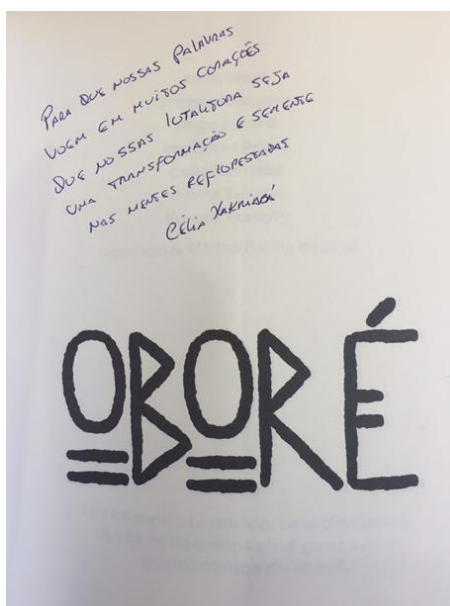 PARA QUE NOSSAS PALAVRAS
VOEM EM MUITOS CORAÇÕES
QUE NOSSAS LUTALITURA SEJA
UMA TRANSFORMAÇÃO E SEMENTE
NAS MENTES REFLORESTADAS
CÉLIA XAKRIABÁ
OBORÉ